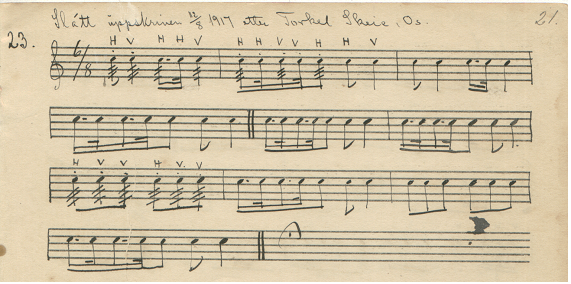 Slått uppskriven 12/8 1917 etter Torkel Skeie, Os. 21.
23.
H V H H V H H V V H H V
6/8
H V V H V. V